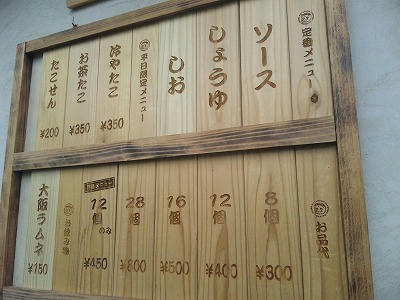 定番メニュー
ソース
しょうゆ
しお
平日限定メニュー
冷やたこ
¥350
お茶たこ
¥350
たこせん
¥200
お品代
8個
¥300
12個
¥400
16個
¥500
28個
¥800
12個のみ
¥450
お飲み物
大阪ラムネ
¥150